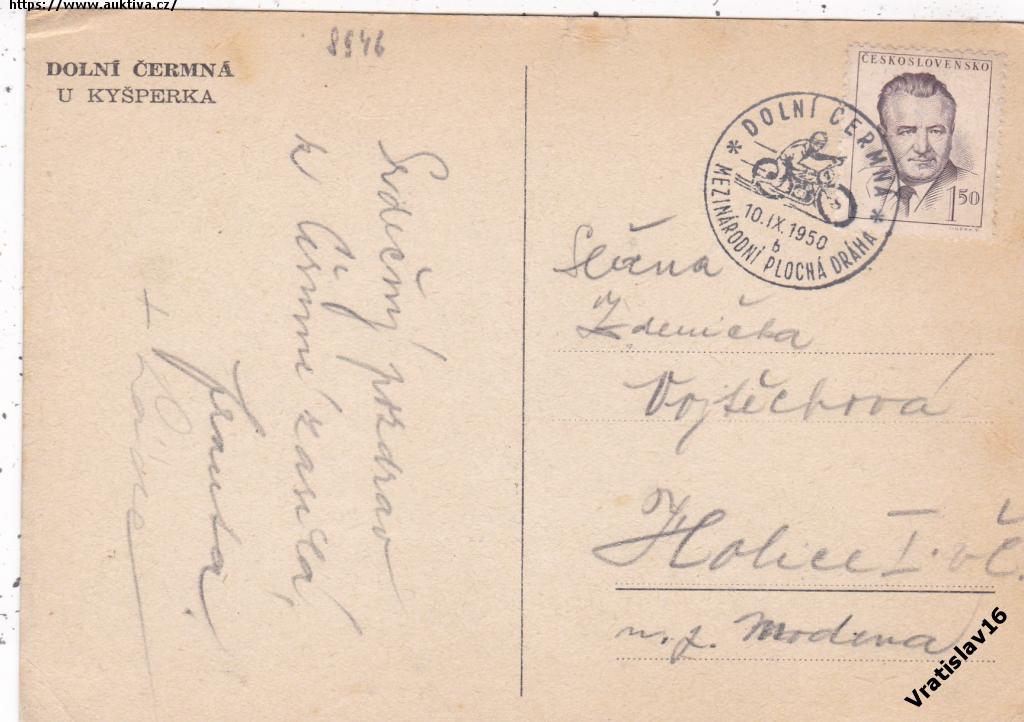 https://www.auktiva.cz/
8946
DOLNÍ ČERMNÁ
U KYŠPERKA
Srdečný pozdrav
z Čermné zasílá
Franta
+ Láďa
ČESKOSLOVENSKO
1 50
* DOLNÍ ČERMNÁ *
10.IX.1950
b
MEZINÁRODNÍ PLOCHÁ DRÁHA
Slečna
Zdenička
Vojtěchová
Holice I. vč.
n. p. Modena
Vratislav16